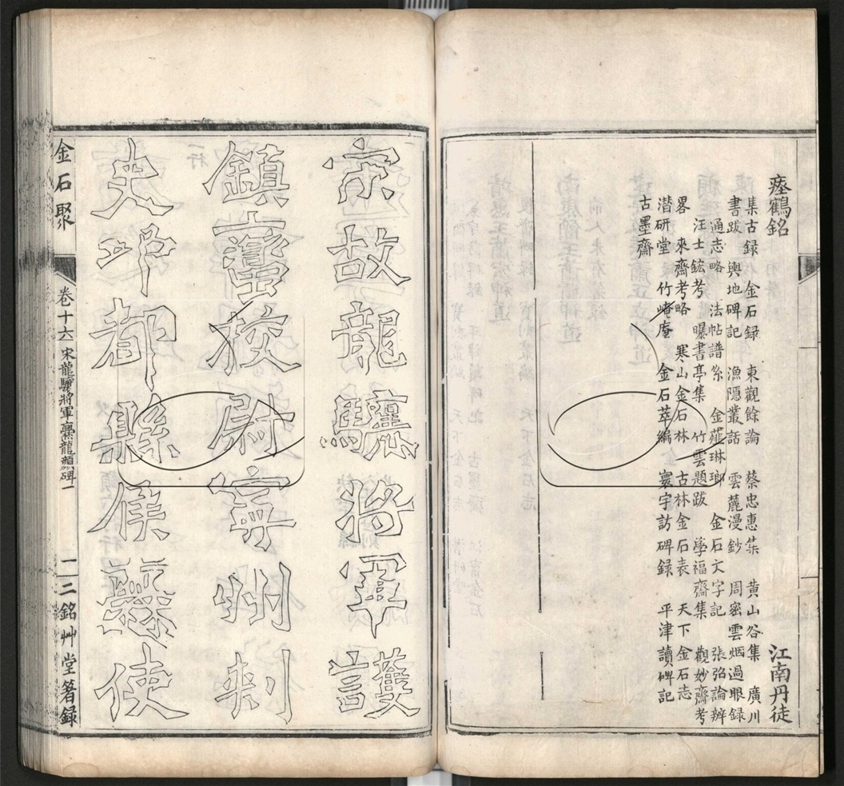 瘞鶴銘
江南丹徒
集古録 金石録 東觀餘論 蔡忠惠集 黄山谷集 廣川
書跋 輿地碑記 漁隱叢話 雲麓漫鈔 周密雲烟過眼録
通志略 法帖譜系 金薤琳瑯 金石文字記 張弨論辨
汪士鋐考 曝書亭集 竹雲題跋 學福齋集 觀妙齋考
畧 來齋考略 寒山金石林 古林金石表 天下金石志
潜研堂 竹崦庵 金石萃編 寰宇訪碑録 平津讀碑記
古墨齋
宗故龍驤將軍護
鎮蠻挍尉寧州刺
史邛都縣侯爨使
金石聚
卷十六 宋龍驤將軍爨龍顔碑一
一 二銘艸堂箸録